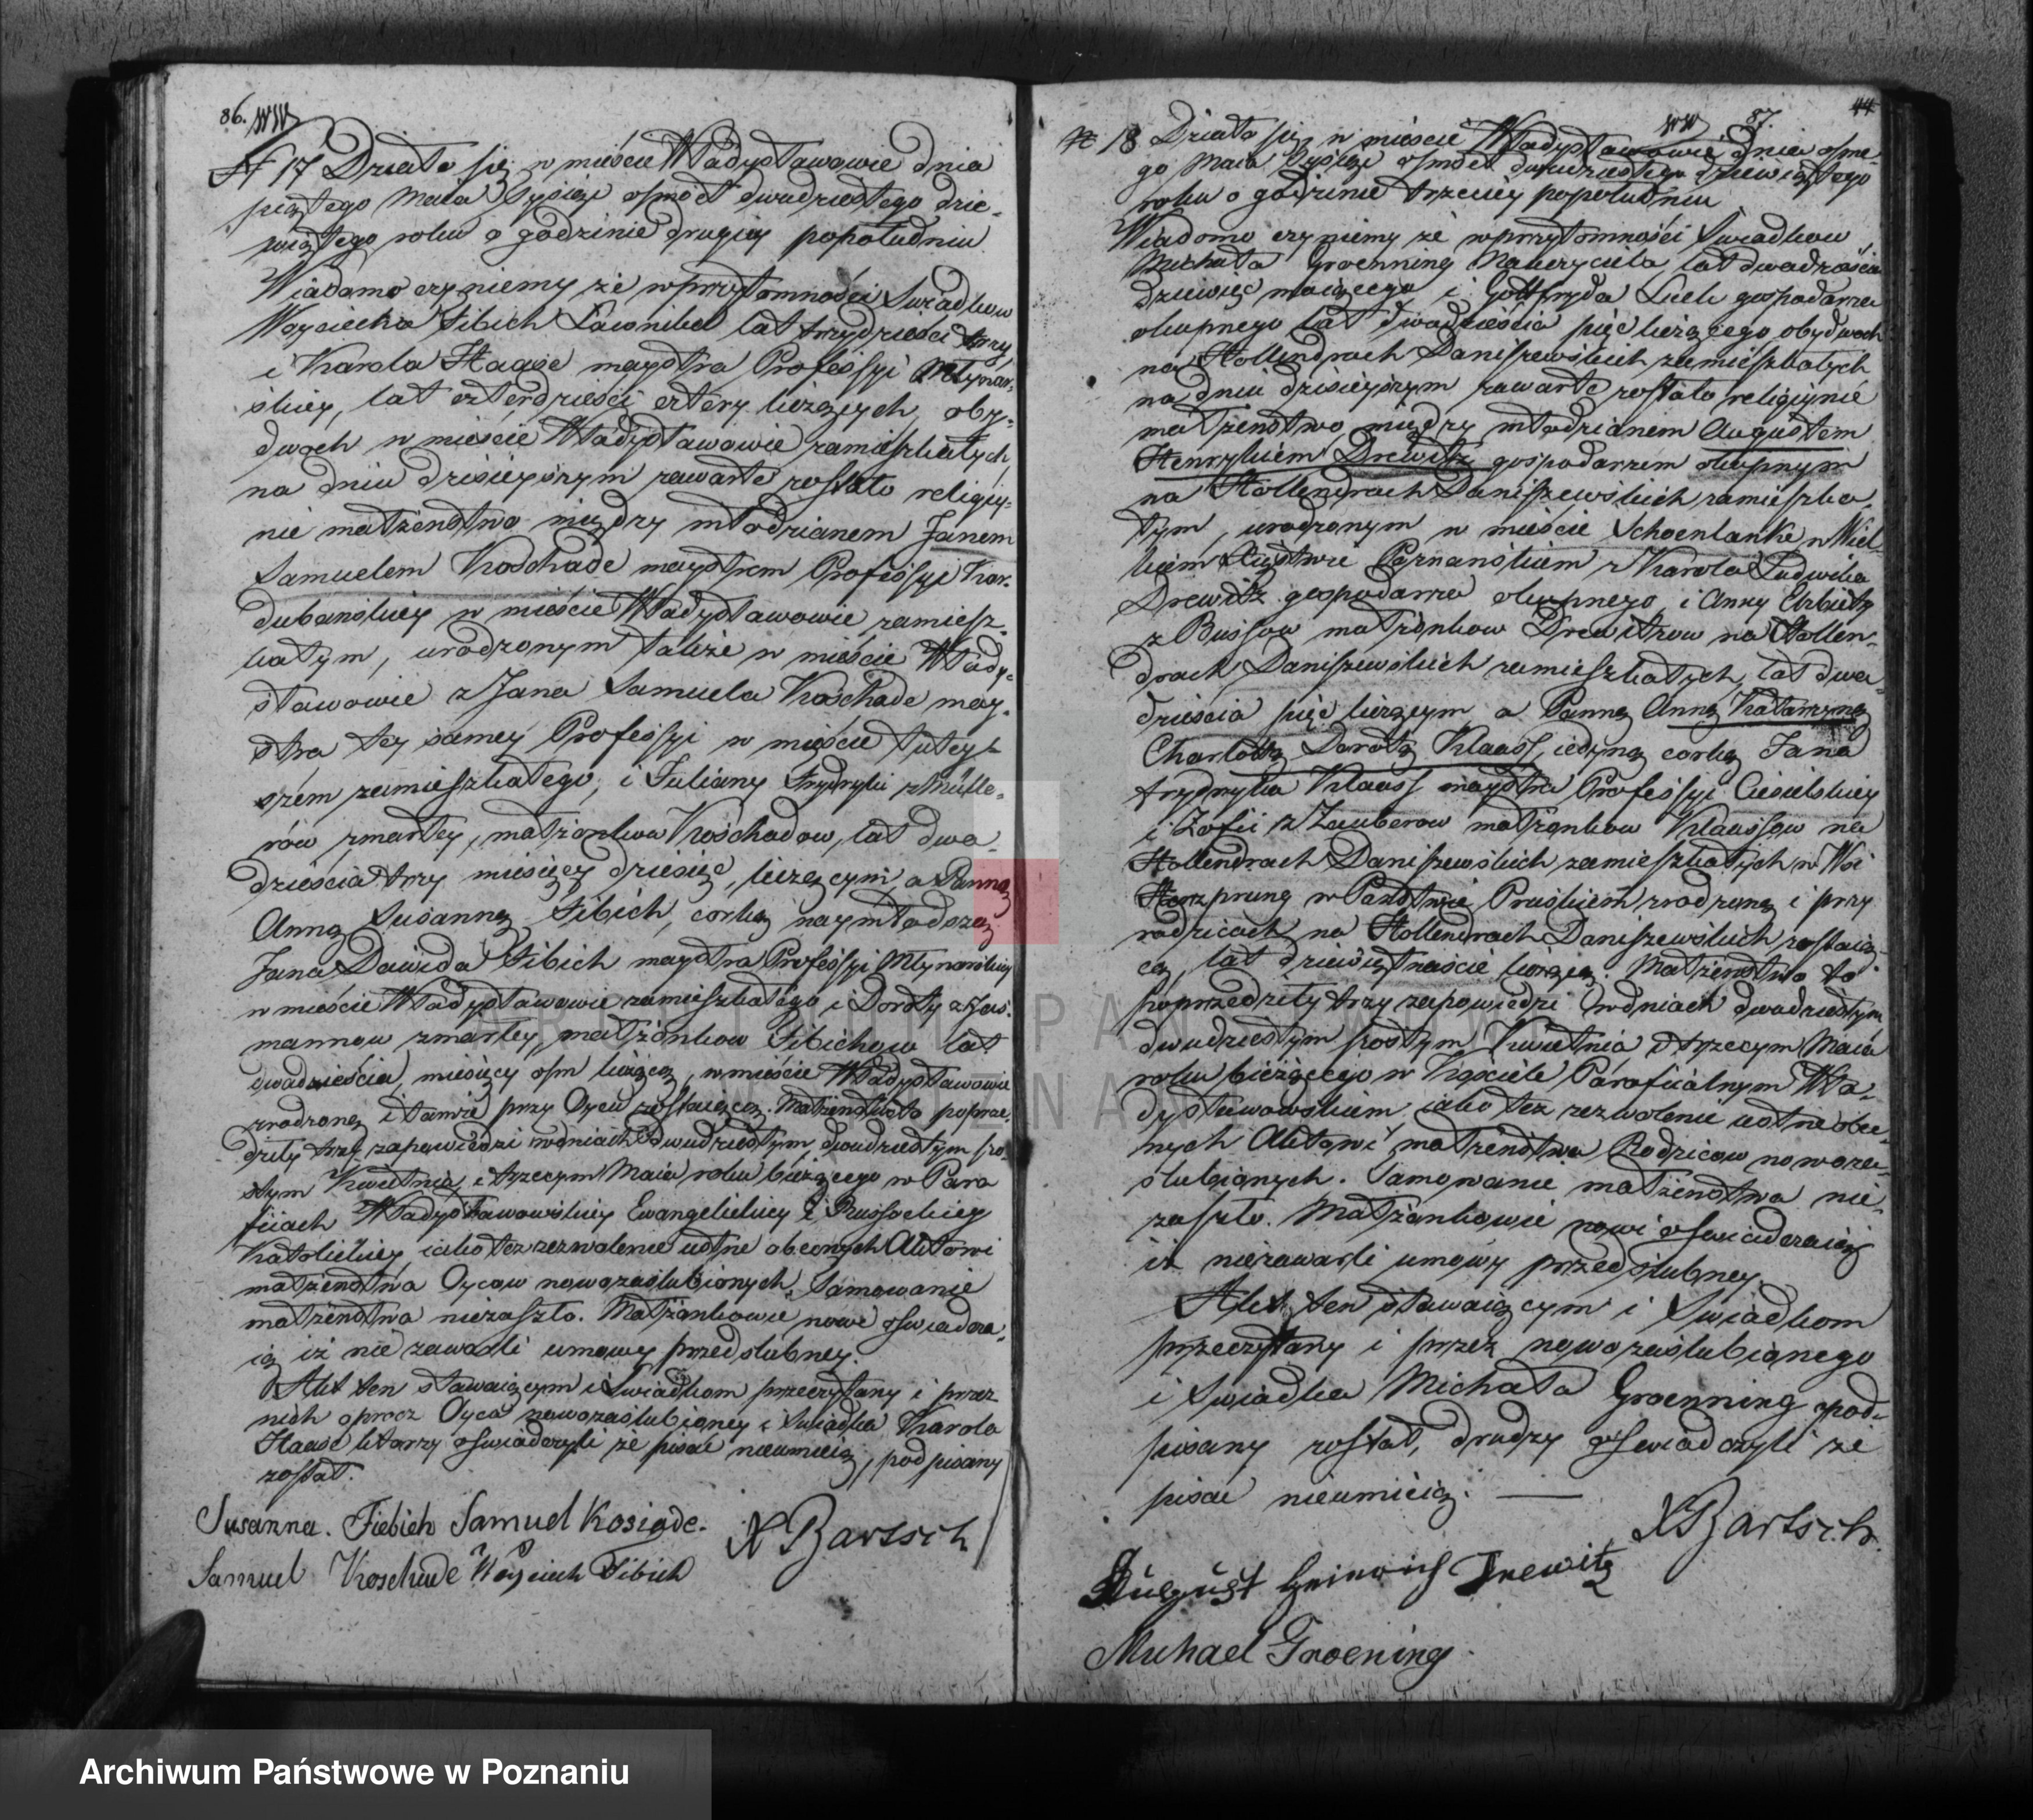 86.
N 17 Działo się w mieście Władysławowie dnia
piątego Maia tysiąc osmset dwudziestego dzie-
wiątego roku o godzinie drugiey popołudniu
Wiadomo czyniemy że w przytomności Swiadkow
Woyciecha Fibich Ławnika lat trzydzieści trzy,
i Karola Haase maystra Professyi Młynar-
skiey, lat czterdzieści cztery liczących, oby-
dwoch w mieście Władysławowie zamieszkałych
na dniu dzisieyszym zawarte zostało religiy-
nie małżenstwo między młodzianem Janem
Samuelem Koschade maystrem Professyi Kor-
dubanskiey w mieście Władysławowie zamiesz-
kałym, urodzonym także w mieście Włady-
sławowie z Jana Samuela Koschade may-
stra tey samey Professyi w mieście tutey-
szem zamieszkałego, i Juliany Frydryki z Mülle-
rów zmarłey, małżonkow Koschadow, lat dwa-
dzieścia trzy miesięcy dziesięć, liczącym, a Panną
Anną Susanną Fibich, corką naymłodszą
Jana Dawida Fibich maystra Professyi Młynarskiey
w mieście Władysławowie zamieszkałego i Doroty z
mannow zmarłey, małżonkow Fibichow lat
dwadzieścia, miesięcy osm liczącą, w mieście Władysławowie
zrodzoną i tamże przy Oycu zostaiącą. Małżenstwo to poprze-
dziły trzy zapowiedzi w dniach dwudziestym, dwudziestym szo-
stym Kwietnia, i trzecym Maia roku bieżącego w Para
fiach Władysławowskiey Ewangelickiey i Russockiey
Katolickiey, iako też zezwolenie ustne obecnych Aktowi
małżenstwa Oycow nowozaślubionych. Tamowanie
małżenstwa niezaszło. Małżonkowie nowi oswiadcza-
ią iż nie zawarli umowy przedslubney.
Akt ten stawaiącym i Swiadkom przeczytany i przez
nich oprocz Oyca nowozaslubioney i Swiadka Karola
Haase ktorzy oswiadczyli że pisać nieumieią, podpisany
został.
Susanna. Fiebich Samuel Kosiade.
X Bartsch
Samuel Koschade Woyciech Fibich
87.
44
N 18 Działo się w mieście Władysławowie dnia osme-
go Maia tysiąc osmset dwudziestego dziewiątego
roku o godzinie trzeciey popołudniu
Wiadomo czyniemy że w przytomności Swiadkow
Michała Groenning Nauczyciela, lat dwadzieścia
dziewięć maiącego i Gottfryda Lueck gospodarza
okupnego lat dwadzieścia pięć liczącego obydwoch
na Hollendrach Daniszewskich zamieszkałych
na dniu dzisieyszym zawarte zostało religiynie
małżenstwo między młodzianem Augustem
Henrykiem Drewitz gospodarzem okupnym
na Hollendrach Daniszewskich zamieszka-
łym, urodzonym w mieście Schoenlanke w Wiel-
kiem Xięstwie Poznanskiem z Karola Ludwika
Drewitz gospodarza okupnego, i Anny Elzbiety
z Bussow małżonkow Drewitzow na Hollen-
drach Daniszewskich zamieszkałych, lat dwa-
dzieścia pięć liczącym, a Panną Anną Katarzyną
Charlottą Dorotą Klaass, iedyną corką Jana
Frydryka Klaass maystra Professyi Ciesielskiey
i Zofii z Zauberow małżonkow Klaassow na
Hollendrach Daniszewskich zamieszkałych w Wsi
Herzprung w Panstwie Pruskiem zrodzoną i przy
rodzicach na Hollendrach Daniszewskich zostaią-
cą, lat dziewiętnaście liczącą. Małżenstwo to
poprzedziły trzy zapowiedzi w dniach dwudziestym
dwudziestym szostym Kwietnia i trzecym Maia
roku bieżącego w Kościele Parafialnym Wła-
dysławowskiem, iako też zezwolenie ustne obec-
nych Aktowi małżenstwa Rodzicow nowoza-
slubionych. Tamowanie małżenstwa nie
zaszło. Małżonkowie nowi oswiadczaią
iż niezawarli umowy przedslubney.
Akt ten stawaiącym i Swiadkom
przeczytany i przez nowozaslubionego
i Swiadka Michała Groenning pod-
pisany został, drudzy oswiadczyli że
pisać nieumieią.
X Bartsch.
August Heinrich Drewitz
Michael Groening.
ARCHIWUM PAŃSTWOWE
W POZNANIU
Archiwum Państwowe w Poznaniu